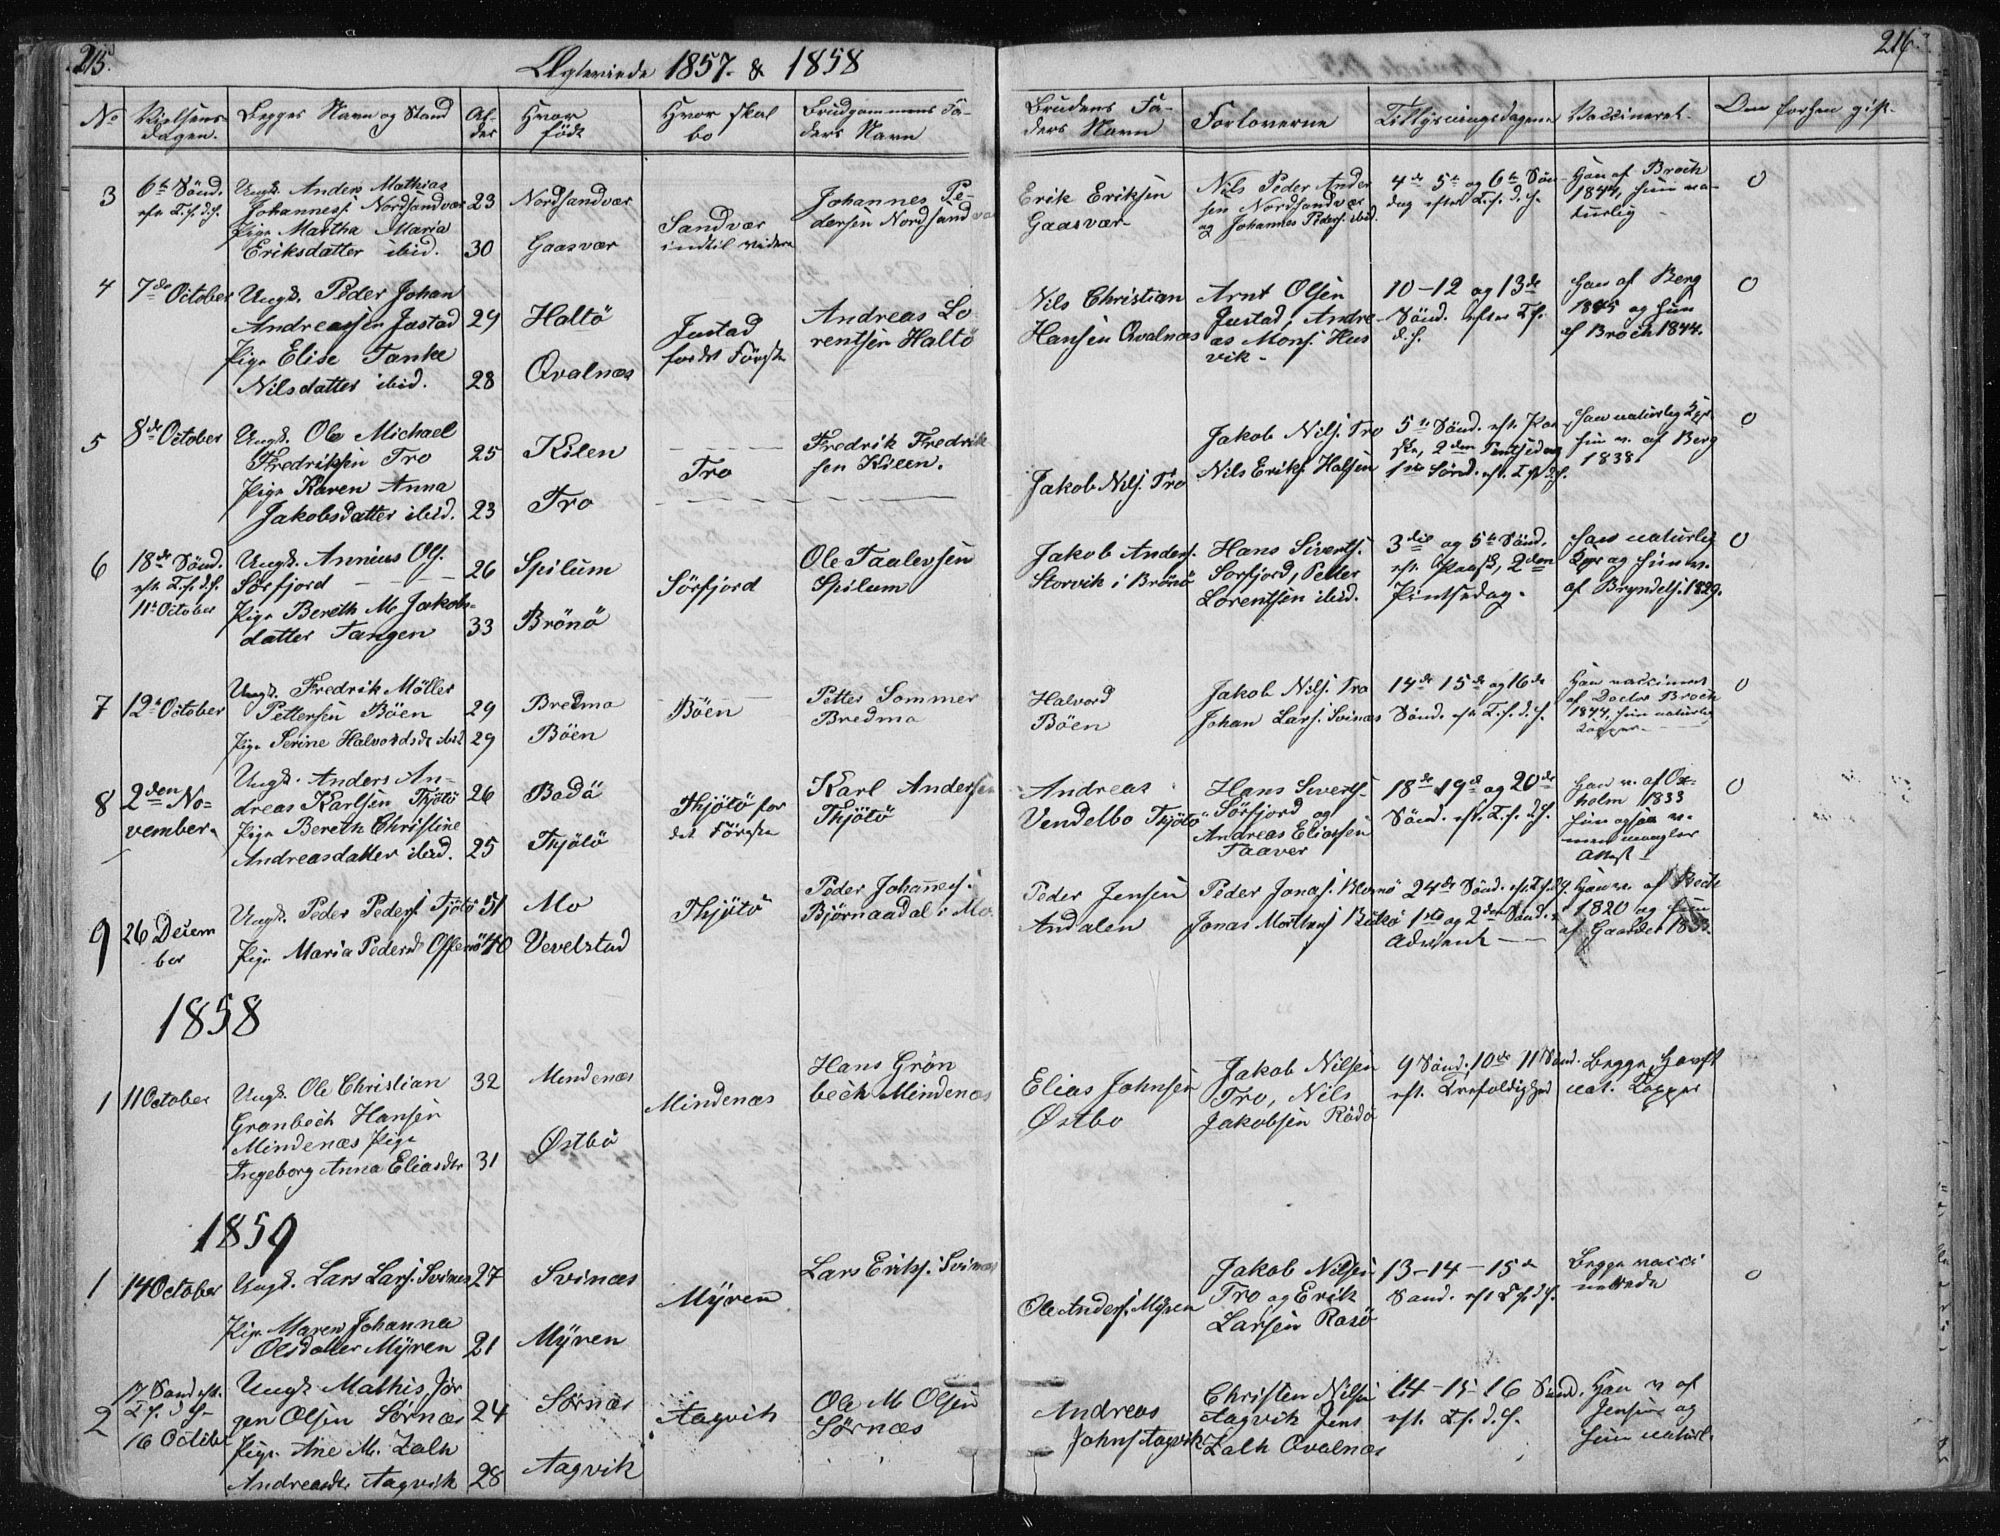 215.
Ægteviede 1857. & 1858
216.
No
Vielsens-
dagen.
Begges Navn og Stand
Al-
der
Hvor
född
Hvor skal
bo
Brudgommens Fa-
ders Navn
Brudens Fa-
ders Navn
Forloverne
Tillysningsdagene
Vaccineret.
Om forhen gift.
3
6te Sönd.
eft. T.f.d.f.
Ungk. Anders Mathias
Johanness. Nordsandvær
Pige Martha Maria
Eriksdatter ibid.
23
30
Nordsandvær
Gaasvær
Sandvær
indtil videre
Johannes Pe-
dersen Nordsandvær
Erik Eriksen
Gaasvær
Nils Peder Ander
sen Nordsandvær
og Johannes Peders. ibid.
4de 5te og 6te Sön-
dag efter T.f.d.f.
Han af Broch
1844, hun na-
turlig
0
4
7de October
Ungk. Peder Johan
Andreassen Justad
Pige Elise Tanke
Nilsdatter ibid.
29
28
Haltö
Qvalnæs
Justad
fordet Förste
Andreas Lo
rentsen Haltö
Nils Christian
Hansen Qvalnæs
Arnt Olsen
Justad, Andre-
as Mons. Hus
vik
10-12 og 13de
Sönd. efter T.f.
d.f.
Han af Berg
1845 og hun
af Broch 1844.
0
5
8de October
Ungk. Ole Michael
Fredriksen Tro
Pige Karen Anna
Jakobsdatter ibid.
25
23
Kilen
Tro
Tro
Fredrik Fredrik
sen Kilen.
Jakob Nils. Tro
Jakob Nils. Tro
Nils Eriks. Halsen
5te Sönd. eft. Paa
ske, 2den Pintsedag
1ste Sönd. eft. T.f.d.f.
Han naturlig Kpr.
hun v. af Berg
1838.
0
6
18de Sönd.
eft. T.f.d.f.
11te October
Ungk. Annius Ols.
Sörfjord
Pige Bereth M. Jakobs-
datter Tangen
26
33
Spilum
Brönö
Sörfjord
Ole Taalevsen
Spilum
Jakob Anders.
Storvik i Brönö
Hans Siverts.
Sorfjord, Petter
Lorentsen ibid.
3die og 5te Sönd.
eft. Paask, 2den
Pintsedag.
Han naturlig
Kpr og hun v.
af Bryndels. 1829.
0
7
12te October
Ungk. Fredrik Möller
Pettersen Böen
Pige Serine Halvordsd. ibid
29
29
Bredma
Böen
Böen
Petter Sommer
Bredma
Halvord
Böen
Jakob Nils. Tro
Johan Lars. Svinæs
14de 15de og 16de
Sönd. eft. T.f.d.f.
Han vaccineret
af Doctor Broch
1844, hun naturlig
Kopper
0
8
2den No-
vember
Ungk. Anders An-
dreas Karlsen Thjötö
Pige Bereth Christine
Andreasdatter ibid.
26
25
Bodö
Thjötö
Thjötö for
det Förgste
Karl Andersen
Thjötö
Andreas
Vendelbo Thjötö
Hans Siverts.
Sörfjord og
Andreas Eliassen
Taaver
18de 19de og 20de
Sönd. eft. T.f.d.f.
Han v. af Ox-
holm 1833
hun ogsaa v.
men mangler
Attest
0
9
26 Decem
ber
Ungk. Peder Peders. Tjötö
Pige Maria Pedersd. Offersö
51
40
Mo
Vevelstad
Thjötö
Peder Johannes.
Bjørnaadal i Mo
Peder Jensen
Andalen
Peder Jonas. Blomsö
Jonas Mortens.
24de Sönd. eft. T.f.d.f.
1ste og 2den Sönd.
Advent
Han v. af Bech
1820 og hun
af Gaarder 1833.
1858
1
11 October
Ungk. Ole Christian
Grønbech Hansen
Mindenæs Pige
Ingeborg Anna Eliasdtr
32
31
Mindenæs
Østbö
Mindenæs
Hans Grön
bech Mindenæs
Elias Johnsen
Østbo
Jakob Nilsen
Tro, Nils
Jakobsen Rödö
9 Sönd. 10de 11 Sönd.
eft. Trefoldighed
Begge havft
nat. Kopper
1859
1
14 October
Ungk. Lars Lars. Svinæs
Pige Maren Johanna
Olsdatter Mÿren
27
21
Svinæs
Mÿren
Mÿren
Lars Eriks. Svinæs
Ole Anders. Mÿren
Jakob Nilsen
Tro og Erik
Larsen Rosö
13-14-15de
Sönd. eft T.f.d.f.
Begge vacci
nerede
0
2
17 Sönd eft.
T.f.d.f.
16 October
Ungk Mathis Jör
gen Olsen Sørnæs
Pige Ane M. Zahl
Andreasdtr Aagvik
24
28
Sørnæs
Aagvik
Aagvik
Ole M. Olsen
Sørnæs
Andreas
Johns. Aagvik
Christen Nilsen
Aagvik Jens
Zahl Qvalnæs
14-15-16 Sönd.
eft. T.f.d.f.
Han v. af
Jensen og
hun naturl.